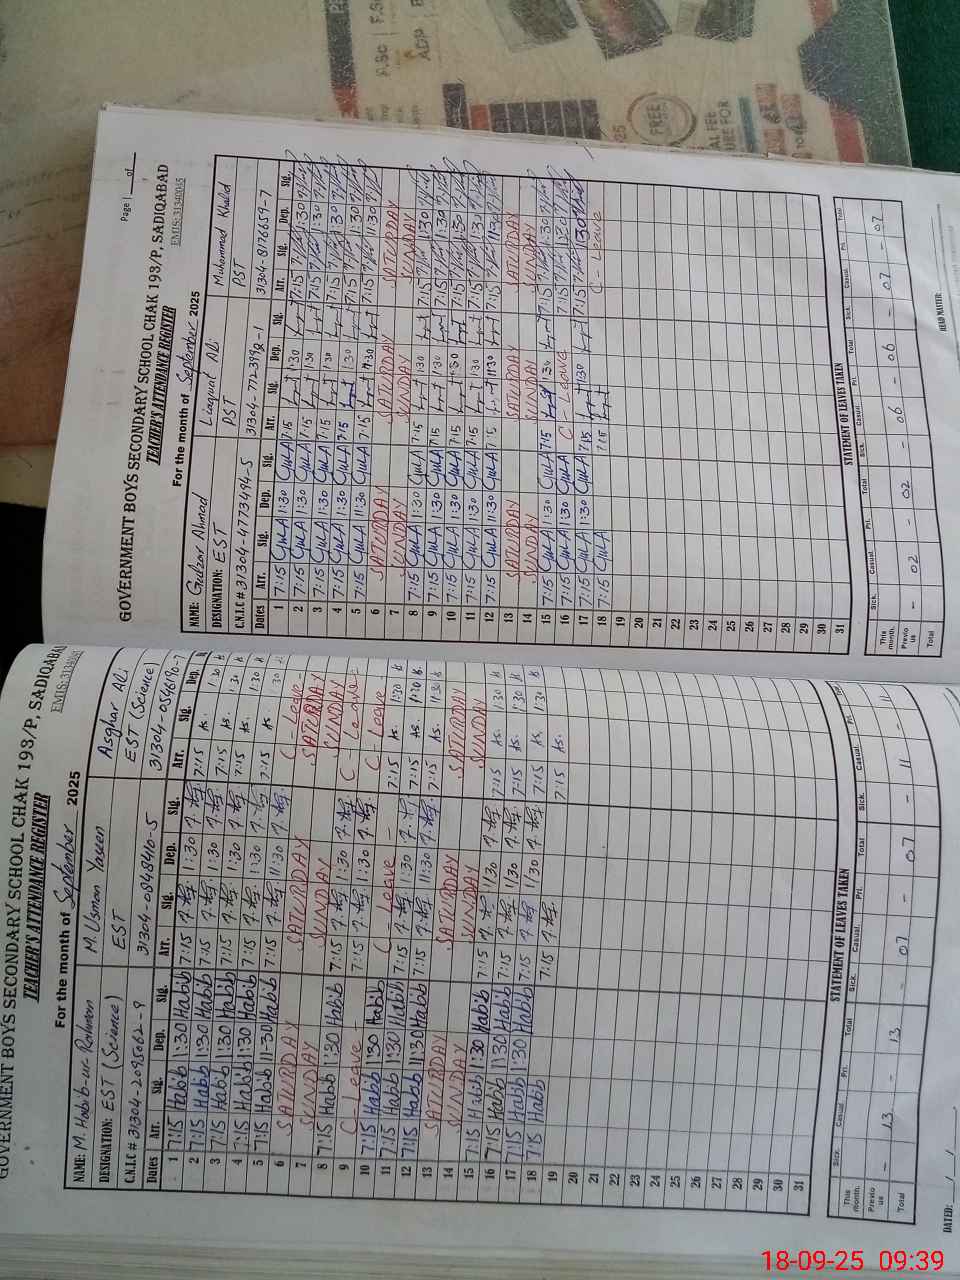 GOVERNMENT BOYS SECONDARY SCHOOL CHAK 193/P, SADIQABAD
TEACHER'S ATTENDANCE REGISTER EMIS: 31340045
For the month of September 2025
NAME: M. Habib-ur-Rahman M. Usman Yaseen Asghar Ali
DESIGNATION: EST (Science) EST EST (Science)
C.N.I.C # 31304-2095062-9 31304-0848460-5 31304-0546190-7
Dates Arr. Sig. Dep. Sig. Arr. Sig. Dep. Sig. Arr. Sig. Dep.
1 7:15 Habib 1:30 Habib 7:15 1:30 7:15 As. 1:30
2 7:15 Habib 1:30 Habib 7:15 1:30 7:15 As. 1:30
3 7:15 Habib 1:30 Habib 7:15 1:30 7:15 As. 1:30
4 7:15 Habib 1:30 Habib 7:15 1:30 7:15 As. 1:30
5 7:15 Habib 11:30 Habib 7:15 11:30 C-Leave
6 SATURDAY SATURDAY SATURDAY
7 SUNDAY SUNDAY SUNDAY
8 7:15 Habib 1:30 Habib 7:15 1:30 C-Leave
9 C-Leave 7:15 1:30 C-Leave
10 7:15 Habib 1:30 Habib C-Leave 7:15 As. 1:30
11 7:15 Habib 1:30 Habib 7:15 1:30 7:15 As. 1:30
12 7:15 Habib 11:30 Habib 7:15 11:30 7:15 As. 11:30
13 SATURDAY SATURDAY SATURDAY
14 SUNDAY SUNDAY SUNDAY
15 7:15 Habib 1:30 Habib 7:15 1:30 7:15 As. 1:30
16 7:15 Habib 1:30 Habib 7:15 1:30 7:15 As. 1:30
17 7:15 Habib 1:30 Habib 7:15 1:30 7:15 As. 1:30
18 7:15 Habib 7:15 7:15 As.
19
20
21
22
23
24
25
26
27
28
29
30
31
STATEMENT OF LEAVES TAKEN
Sick. Casual. Pri. Total Sick. Casual. Pri. Total Sick. Casual. Pri. Total
This month.
Previous - 13 - 13 - 07 - 07 - 11 - 11
Total
DATED: __/__/
Page | of
GOVERNMENT BOYS SECONDARY SCHOOL CHAK 193/P, SADIQABAD
TEACHER'S ATTENDANCE REGISTER EMIS: 31340045
For the month of September 2025
NAME: Gulzar Ahmad Liaquat Ali Muhammad Khalid
DESIGNATION: EST PST PST
C.N.I.C # 31304-4773494-5 31304-7723992-1 31304-8176659-7
Dates Arr. Sig. Dep. Sig. Arr. Sig. Dep. Sig. Arr. Sig. Dep. Sig.
1 7:15 GulA 1:30 GulA 7:15 1:30 7:15 1:30
2 7:15 GulA 1:30 GulA 7:15 1:30 7:15 1:30
3 7:15 GulA 1:30 GulA 7:15 1:30 7:15 1:30
4 7:15 GulA 1:30 GulA 7:15 1:30 7:15 1:30
5 7:15 GulA 11:30 GulA 7:15 11:30 7:15 11:30
6 SATURDAY SATURDAY SATURDAY
7 SUNDAY SUNDAY SUNDAY
8 7:15 GulA 1:30 GulA 7:15 1:30 7:15 1:30
9 7:15 GulA 1:30 GulA 7:15 1:30 7:15 1:30
10 7:15 GulA 1:30 GulA 7:15 1:30 7:15 1:30
11 7:15 GulA 1:30 GulA 7:15 1:30 7:15 1:30
12 7:15 GulA 11:30 GulA 7:15 11:30 7:15 11:30
13 SATURDAY SATURDAY SATURDAY
14 SUNDAY SUNDAY SUNDAY
15 7:15 GulA 1:30 GulA 7:15 1:30 7:15 1:30
16 7:15 GulA 1:30 GulA C-Leave 7:15 1:30
17 7:15 GulA 1:30 GulA 7:15 1:30 7:15 1:30
18 7:15 GulA 7:15 C-Leave
19
20
21
22
23
24
25
26
27
28
29
30
31
STATEMENT OF LEAVES TAKEN
Sick. Casual. Pri. Total Sick. Casual. Pri. Total Sick. Casual. Pri. Total
This month.
Previous - 02 - 02 - 06 - 06 - 07 - 07
Total
HEAD MASTER:
FREE
ADP
18-09-25 09:39